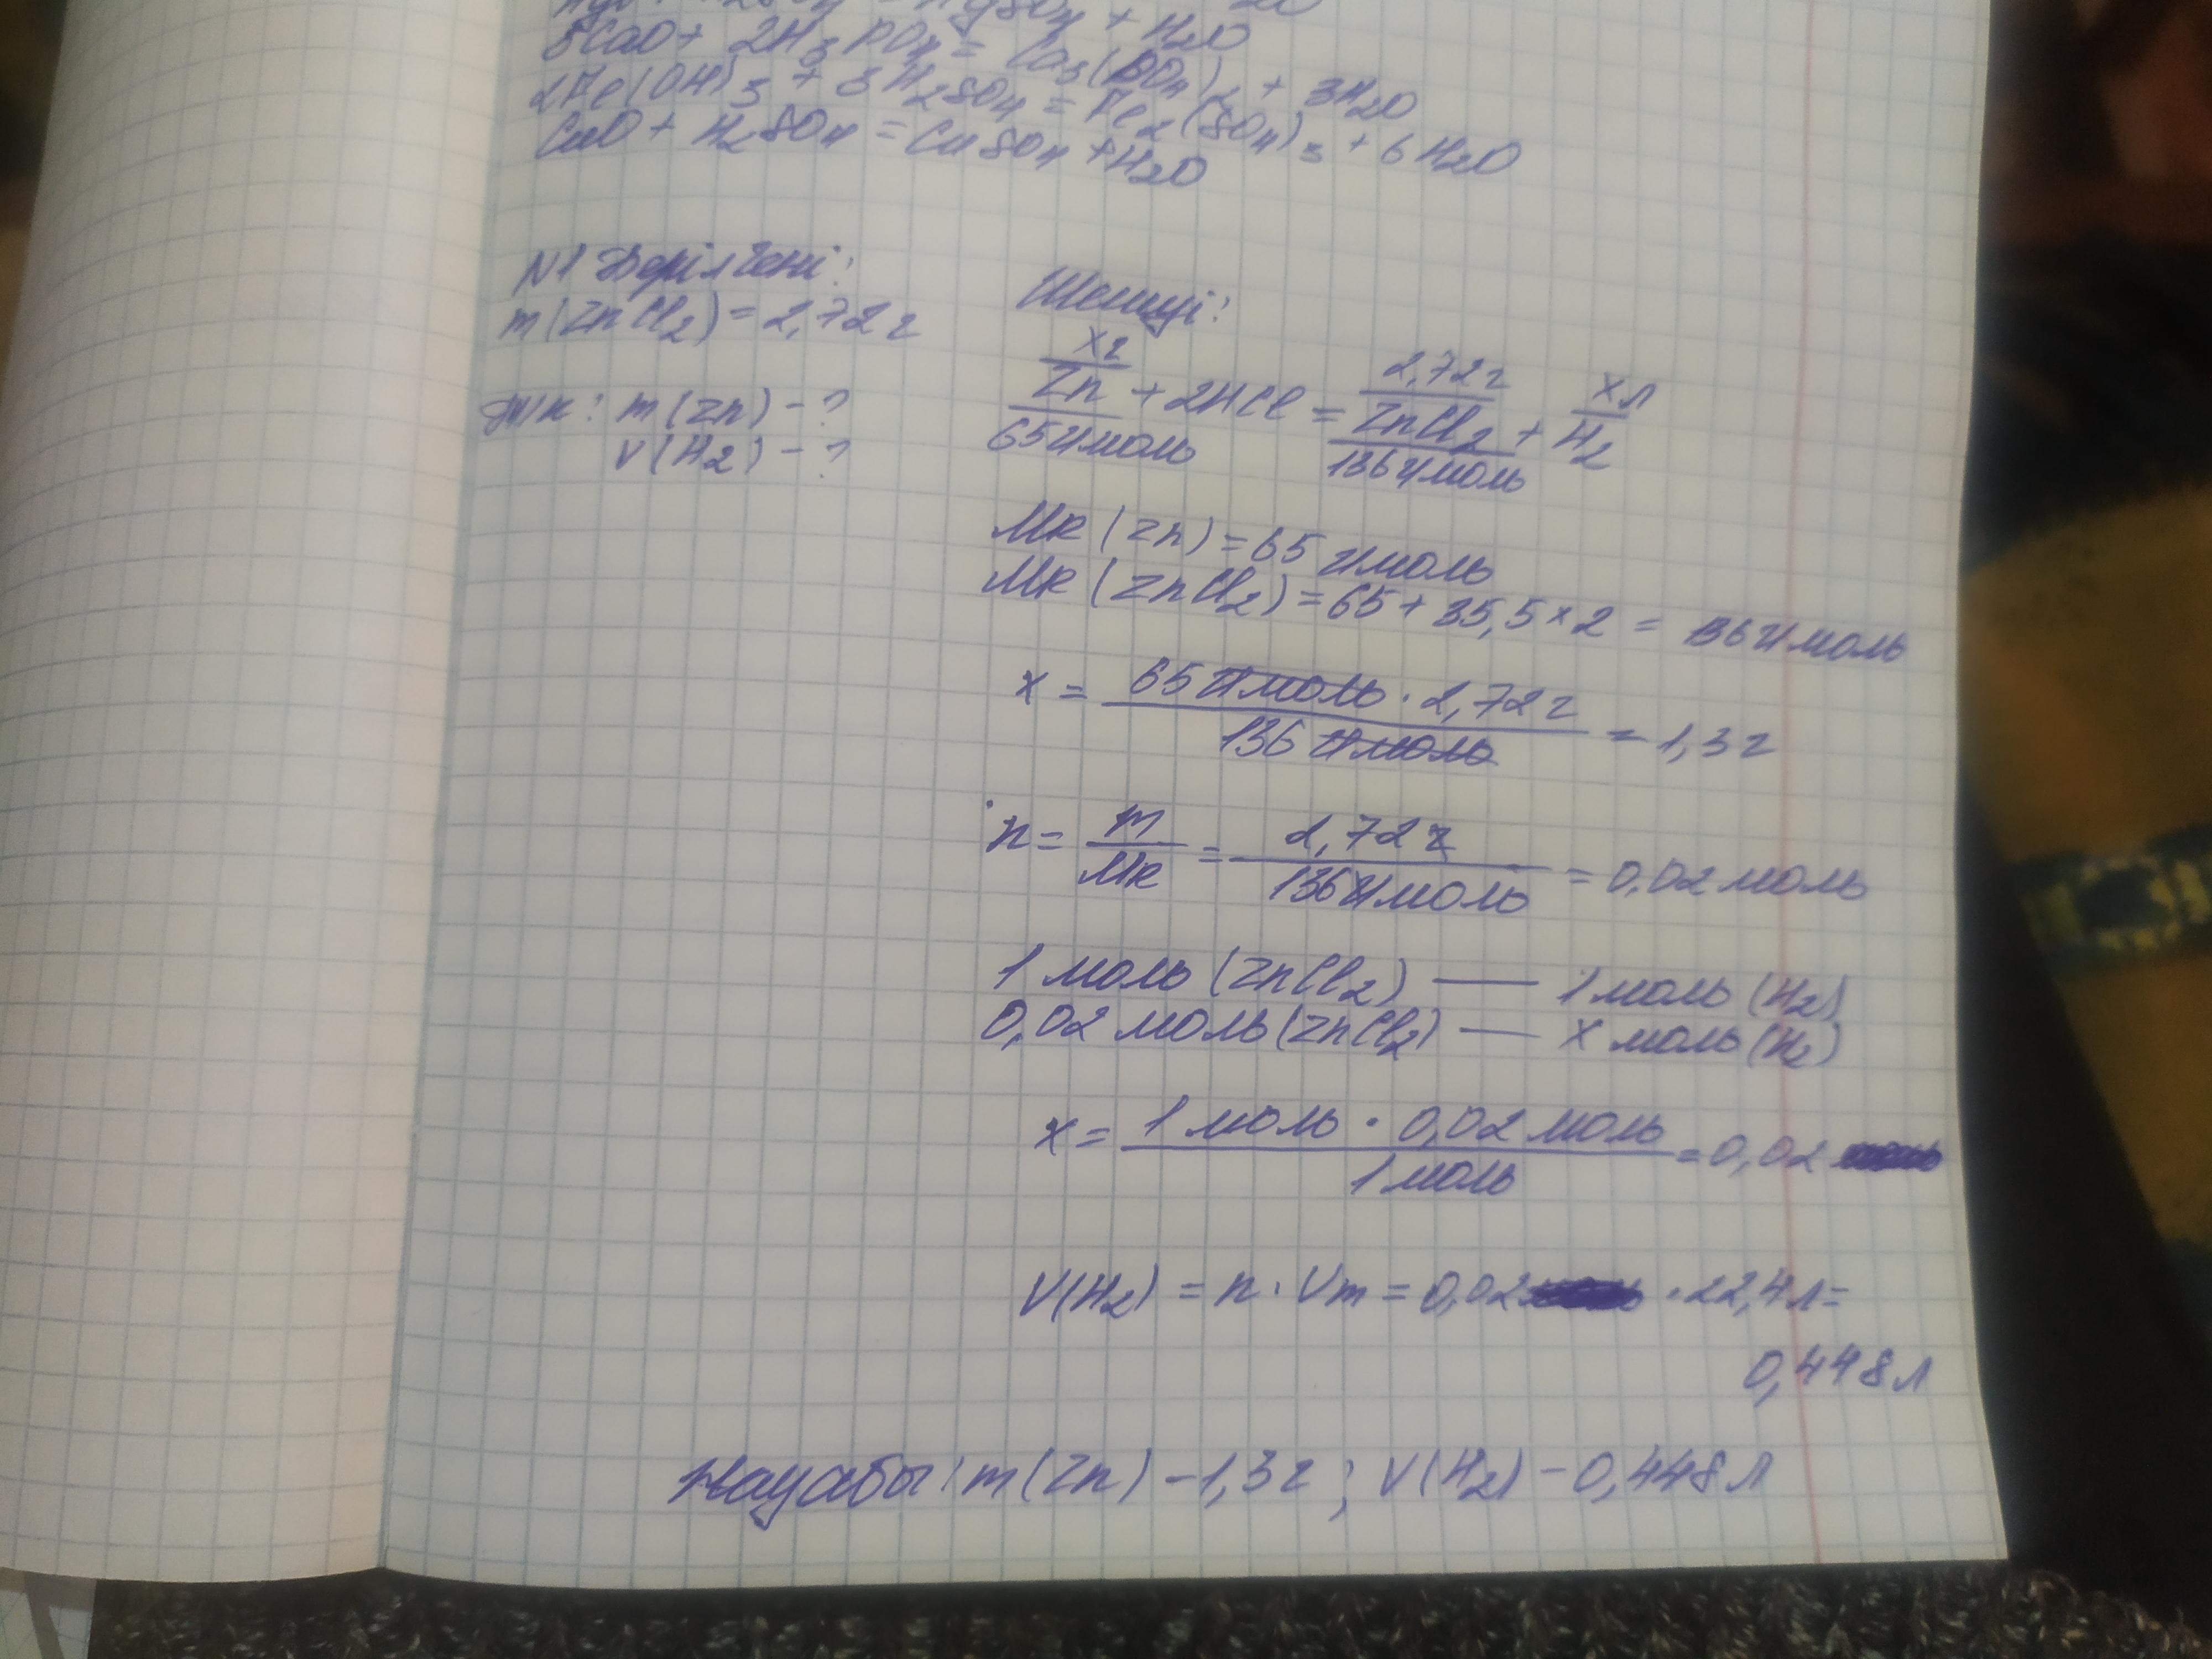 3CaO + 2H3PO4 = Ca3(PO4)2 + 3H2O
2Fe(OH)3 + 3H2SO4 = Fe2(SO4)3 + 6H2O
CuO + H2SO4 = CuSO4 + H2O
N1 Берілгені:
m(ZnCl2) = 2,72 г
Т/к: m(Zn) - ?
V(H2) - ?
Шешуі:
x г 2,72 г x л
Zn + 2HCl = ZnCl2 + H2
65 г/моль 136 г/моль
MR (Zn) = 65 г/моль
MR (ZnCl2) = 65 + 35,5 × 2 = 136 г/моль
x = 65 г/моль · 2,72 г / 136 г/моль = 1,3 г
n = m / MR = 2,72 г / 136 г/моль = 0,02 моль
1 моль (ZnCl2) — 1 моль (H2)
0,02 моль (ZnCl2) — x моль (H2)
x = 1 моль · 0,02 моль / 1 моль = 0,02
V(H2) = n · Vm = 0,02 · 22,4 л =
0,448 л
Жауабы: m(Zn) - 1,3 г ; V(H2) - 0,448 л